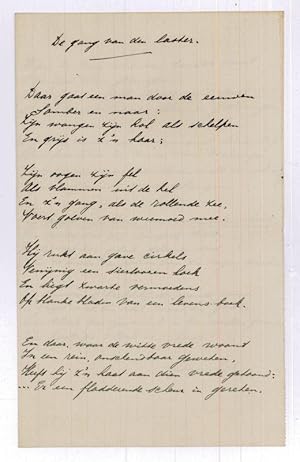 De gang van den laster.
Daar gaat een man door de eeuwen
Somber en naar:
Zijn wangen zijn hol als schelpen
En grijs is z'n haar;
Zijn oogen zijn fel
Als vlammen uit de hel
En z'n gang, als de rollende zee,
Voert golven van weemoed mee.
Hij rukt aan gave cirkels
Venijnig een hoek
En liegt zwarte vermoedens
Op blanke bladen van een levensboek.
En daar, waar de witte vrede woont
In een rein, onaantastbaar geweten,
Heeft hij z'n haat aan dien vrede getoond:
... Er een fladderende scheur in gereten.